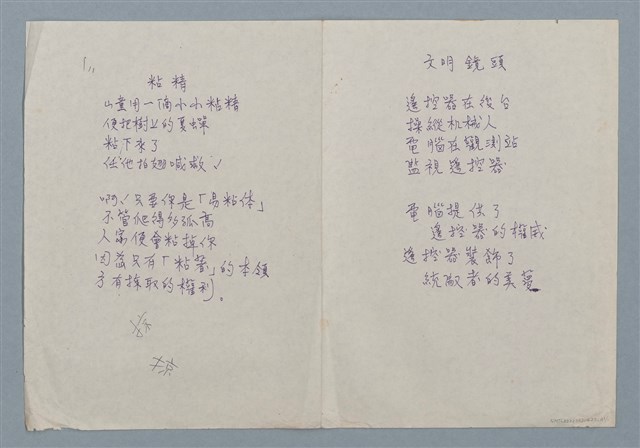 1,,
粘精
山童用一個小小粘精
便把樹上的夏蟬
粘下來了
任他拍翅喊救!
啊!只要你是「易粘体」
不管爬得多孤高
人家便會粘掉你
因為只有「粘著」的本領
才有採取的權利。
文明鏡頭
遙控器在後台
操縱机械人
電腦在觀測站
監視遙控器
電腦提供了
遙控器的權威
遙控器裝飾了
統治者的美夢